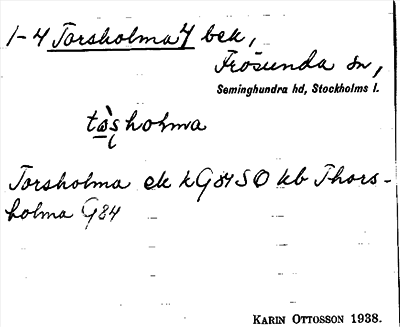 1-4 Torsholma 4 bek,
Frösunda sn,
Seminghundra hd, Stockholms l.
tòʂholma
Torsholma ek kG84SO kb Thors-
holma G84
KARIN OTTOSSON 1938.